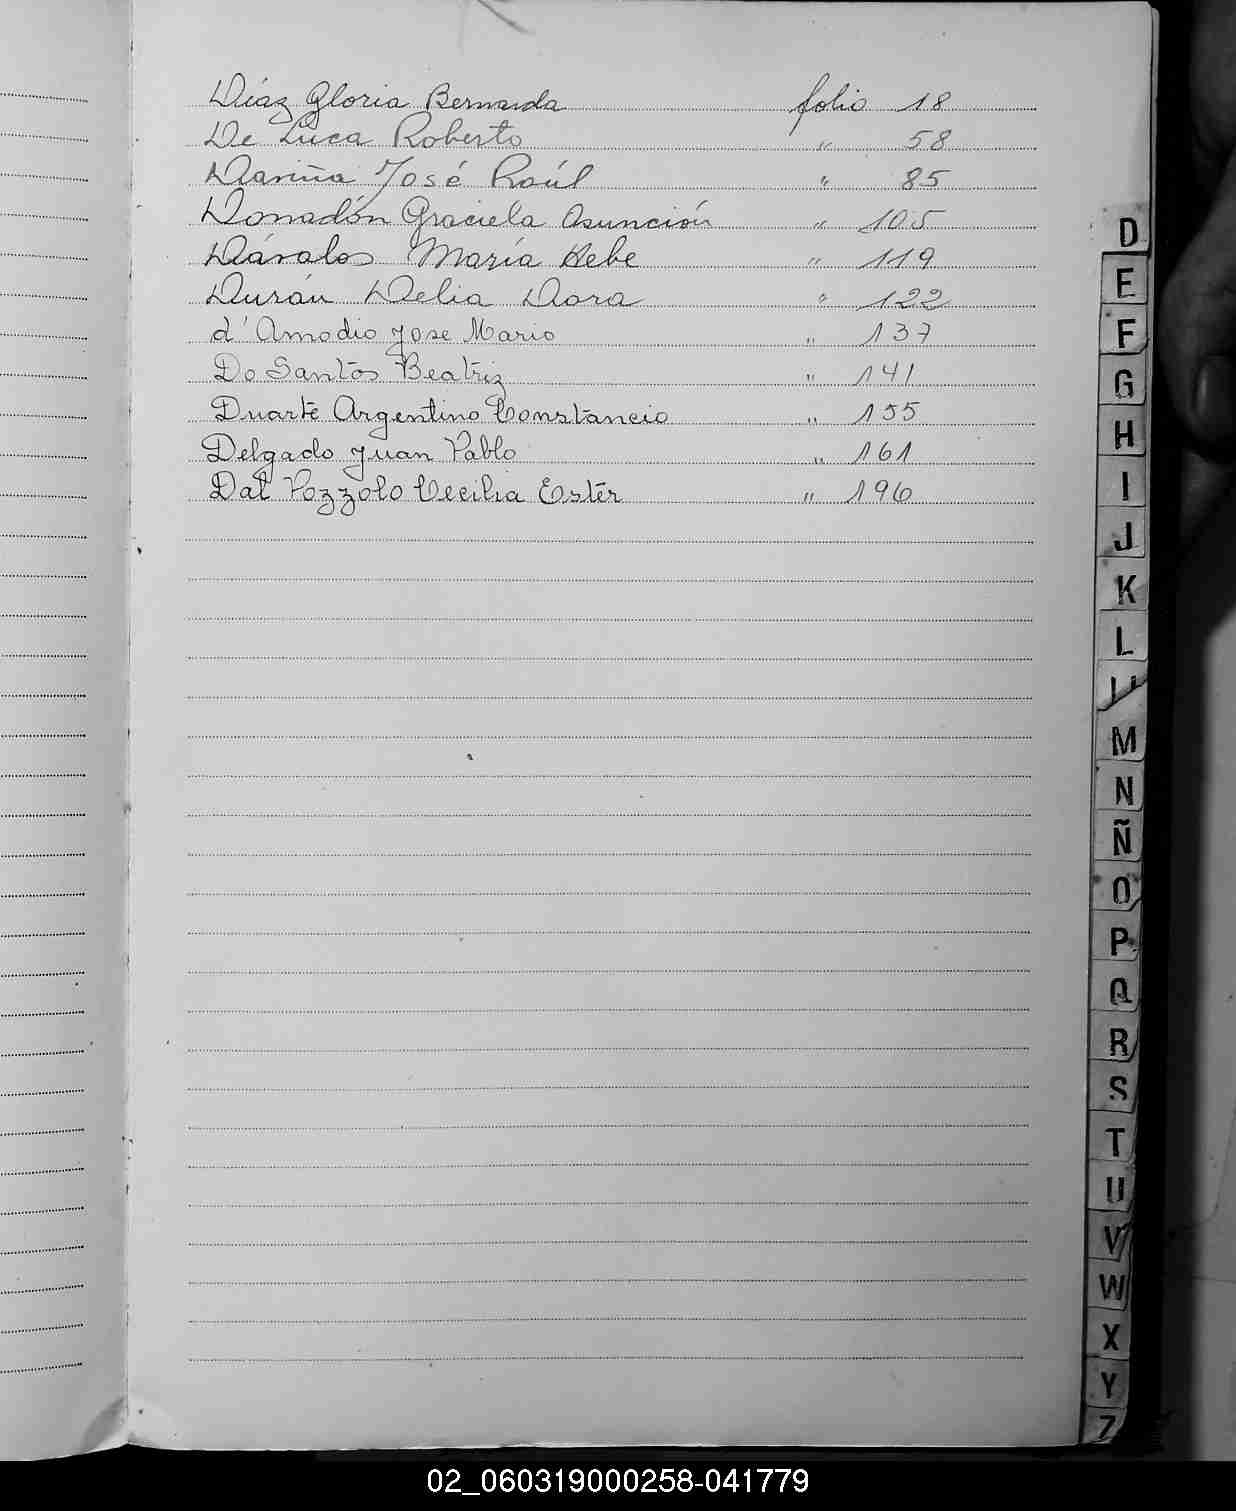 Díaz Gloria Bernarda folio 18
De Luca Roberto " 58
Dariña José Raúl " 85
Donadón Graciela Asunción " 105
Dávalos María Hebe " 119
Durán Delia Dora " 122
d'Amodio Jose Mario " 137
Do Santos Beatriz " 141
Duarte Argentino Constancio " 155
Delgado Juan Pablo " 161
Dal Pozzolo Cecilia Ester " 196
D
E
F
G
H
I
J
K
L
M
N
Ñ
O
P
Q
R
S
T
U
V
W
X
Y
Z
02_060319000258-041779